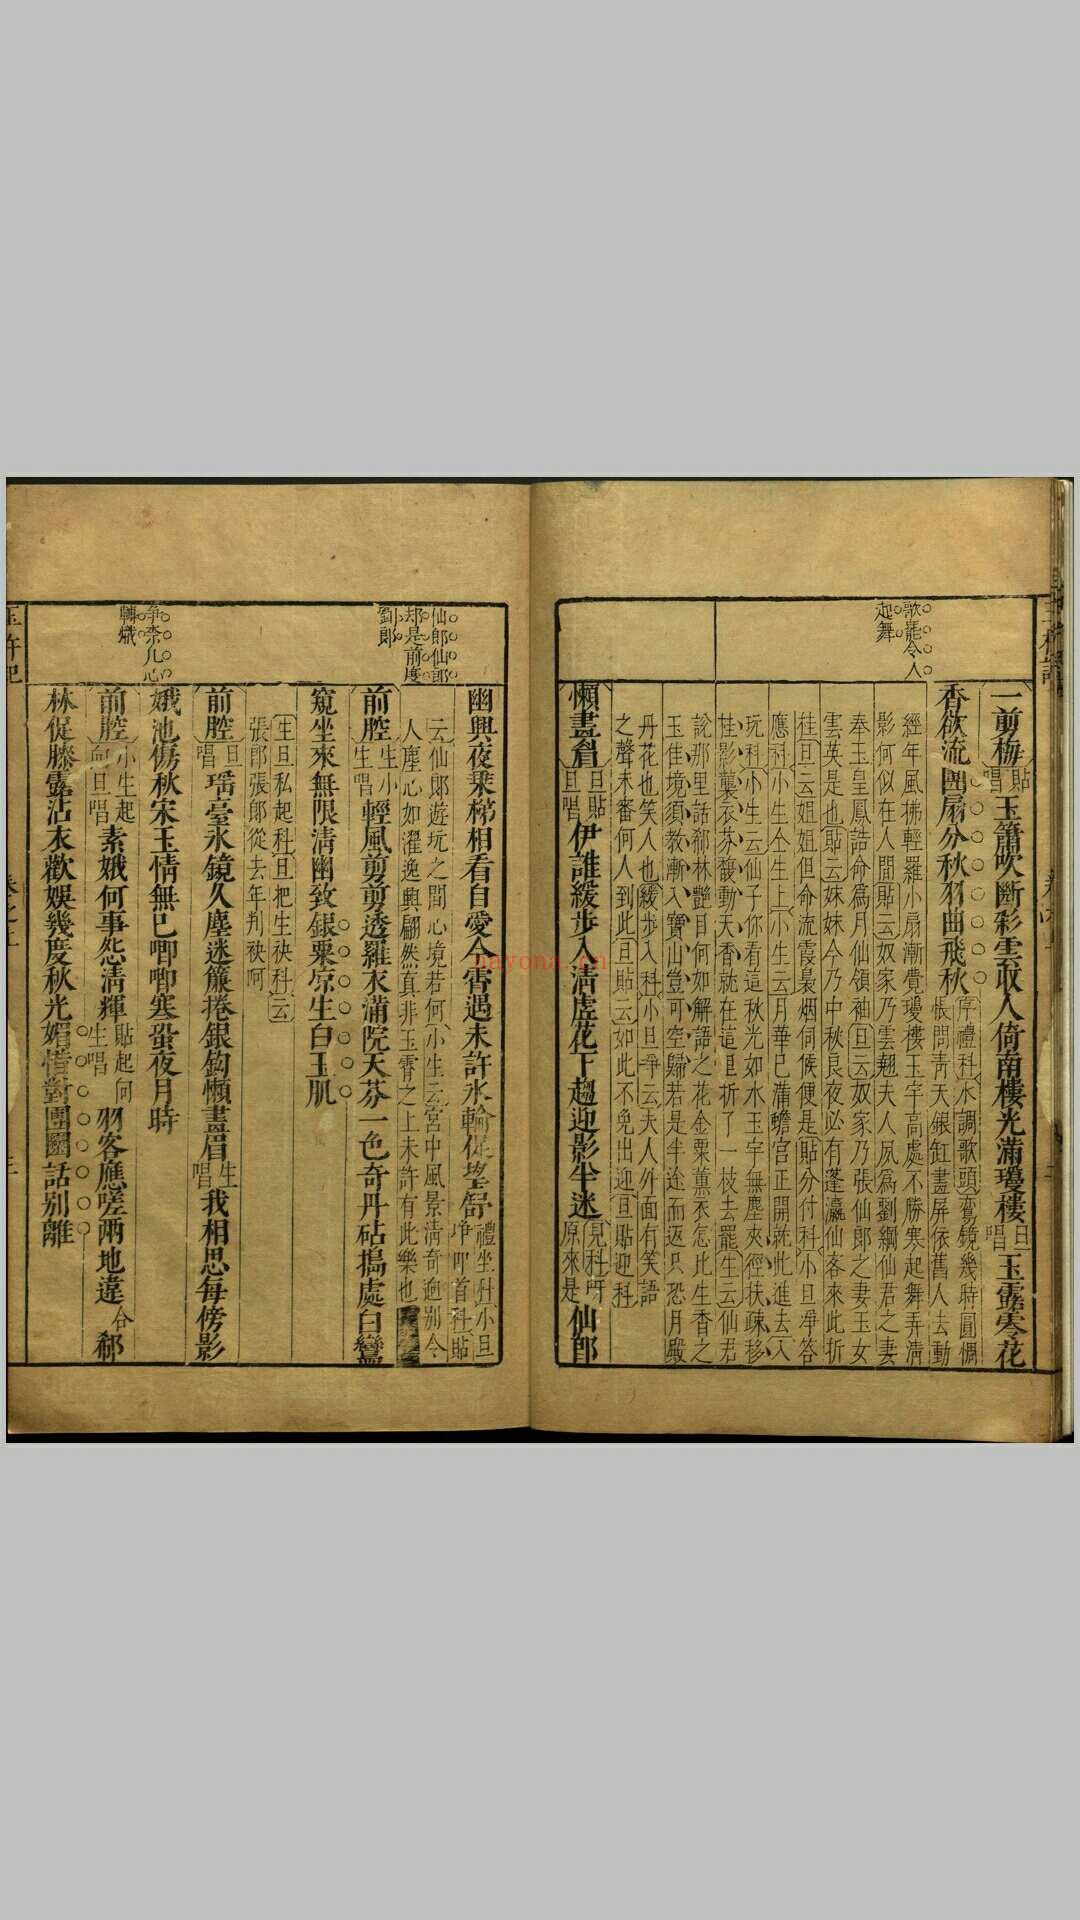 歌罷令人
起舞
一剪梅貼唱玉簫吹斷彩雲收人倚南樓光滿瓊樓旦唱玉露零花
香欲流團扇分秋羽曲飛秋停禮科水調歌頭鸞鏡幾時圓惆
悵問靑天銀缸畫屏依舊人去動
經年風拂輕羅小扇漸覺瓊樓玉宇高處不勝寒起舞弄淸
影何似在人間貼云奴家乃雲翹夫人夙爲劉綱仙君之妻
奉玉皇鳳誥命爲月仙領袖旦云奴家乃張仙郞之妻玉女
雲英是也貼云妹妹今乃中秋良夜必有蓬瀛仙客來此折
桂旦云姐姐但命流霞裊烟伺候便是貼分付科小旦淨答
應科小生仝生上小生云月華已滿蟾宮正開祗此進去入
玩科小生云仙子你看這秋光如水玉宇無塵夾徑扶疎移
桂影襲衣芬馥動天香就在這里折了一枝去罷生云仙君
說那里話郄林艷目何如解語之花金粟薰衣怎比生香之
玉佳境須教漸入寶山豈可空歸若是半途而返只恐月殿
丹花也笑人也緩步入科小旦爭云夫人外面有笑語
之聲未審何人到此旦貼云如此不免出迎旦貼迎科
懶畫眉旦貼旦唱伊誰緩步入淸虛花下趨迎影半迷見科吁原來是仙郞
仙郞仙郞
却是前度
劉郞
幽興夜乗梯相看自愛今宵遇未許氷輪促望舒禮坐科小旦淨叩首科貼
云仙郞遊玩之間心境若何小生云宮中風景淸奇迥別令
人塵心如濯逸興翩然真非玉霄之上未許有此樂也
前腔小生唱輕風剪剪透羅衣滿院天芬一色奇丹砧搗處白鸞
窺坐來無限淸幽致銀粟凉生白玉肌
生旦私起科旦把生袂科云
張郞張郞從去年判袂呵
前腔旦唱瑶臺氷鏡久塵迷簾捲銀鈎懶畫眉生唱我相思每傍影
娥池傷秋宋玉情無已唧唧寒蛩夜月時
前腔小生起向旦唱素娥何事怨淸輝貼起向生唱羽客應嗟兩地違合郄
林促膝露沾衣歡娛幾度秋光媚惜對團圞話别離